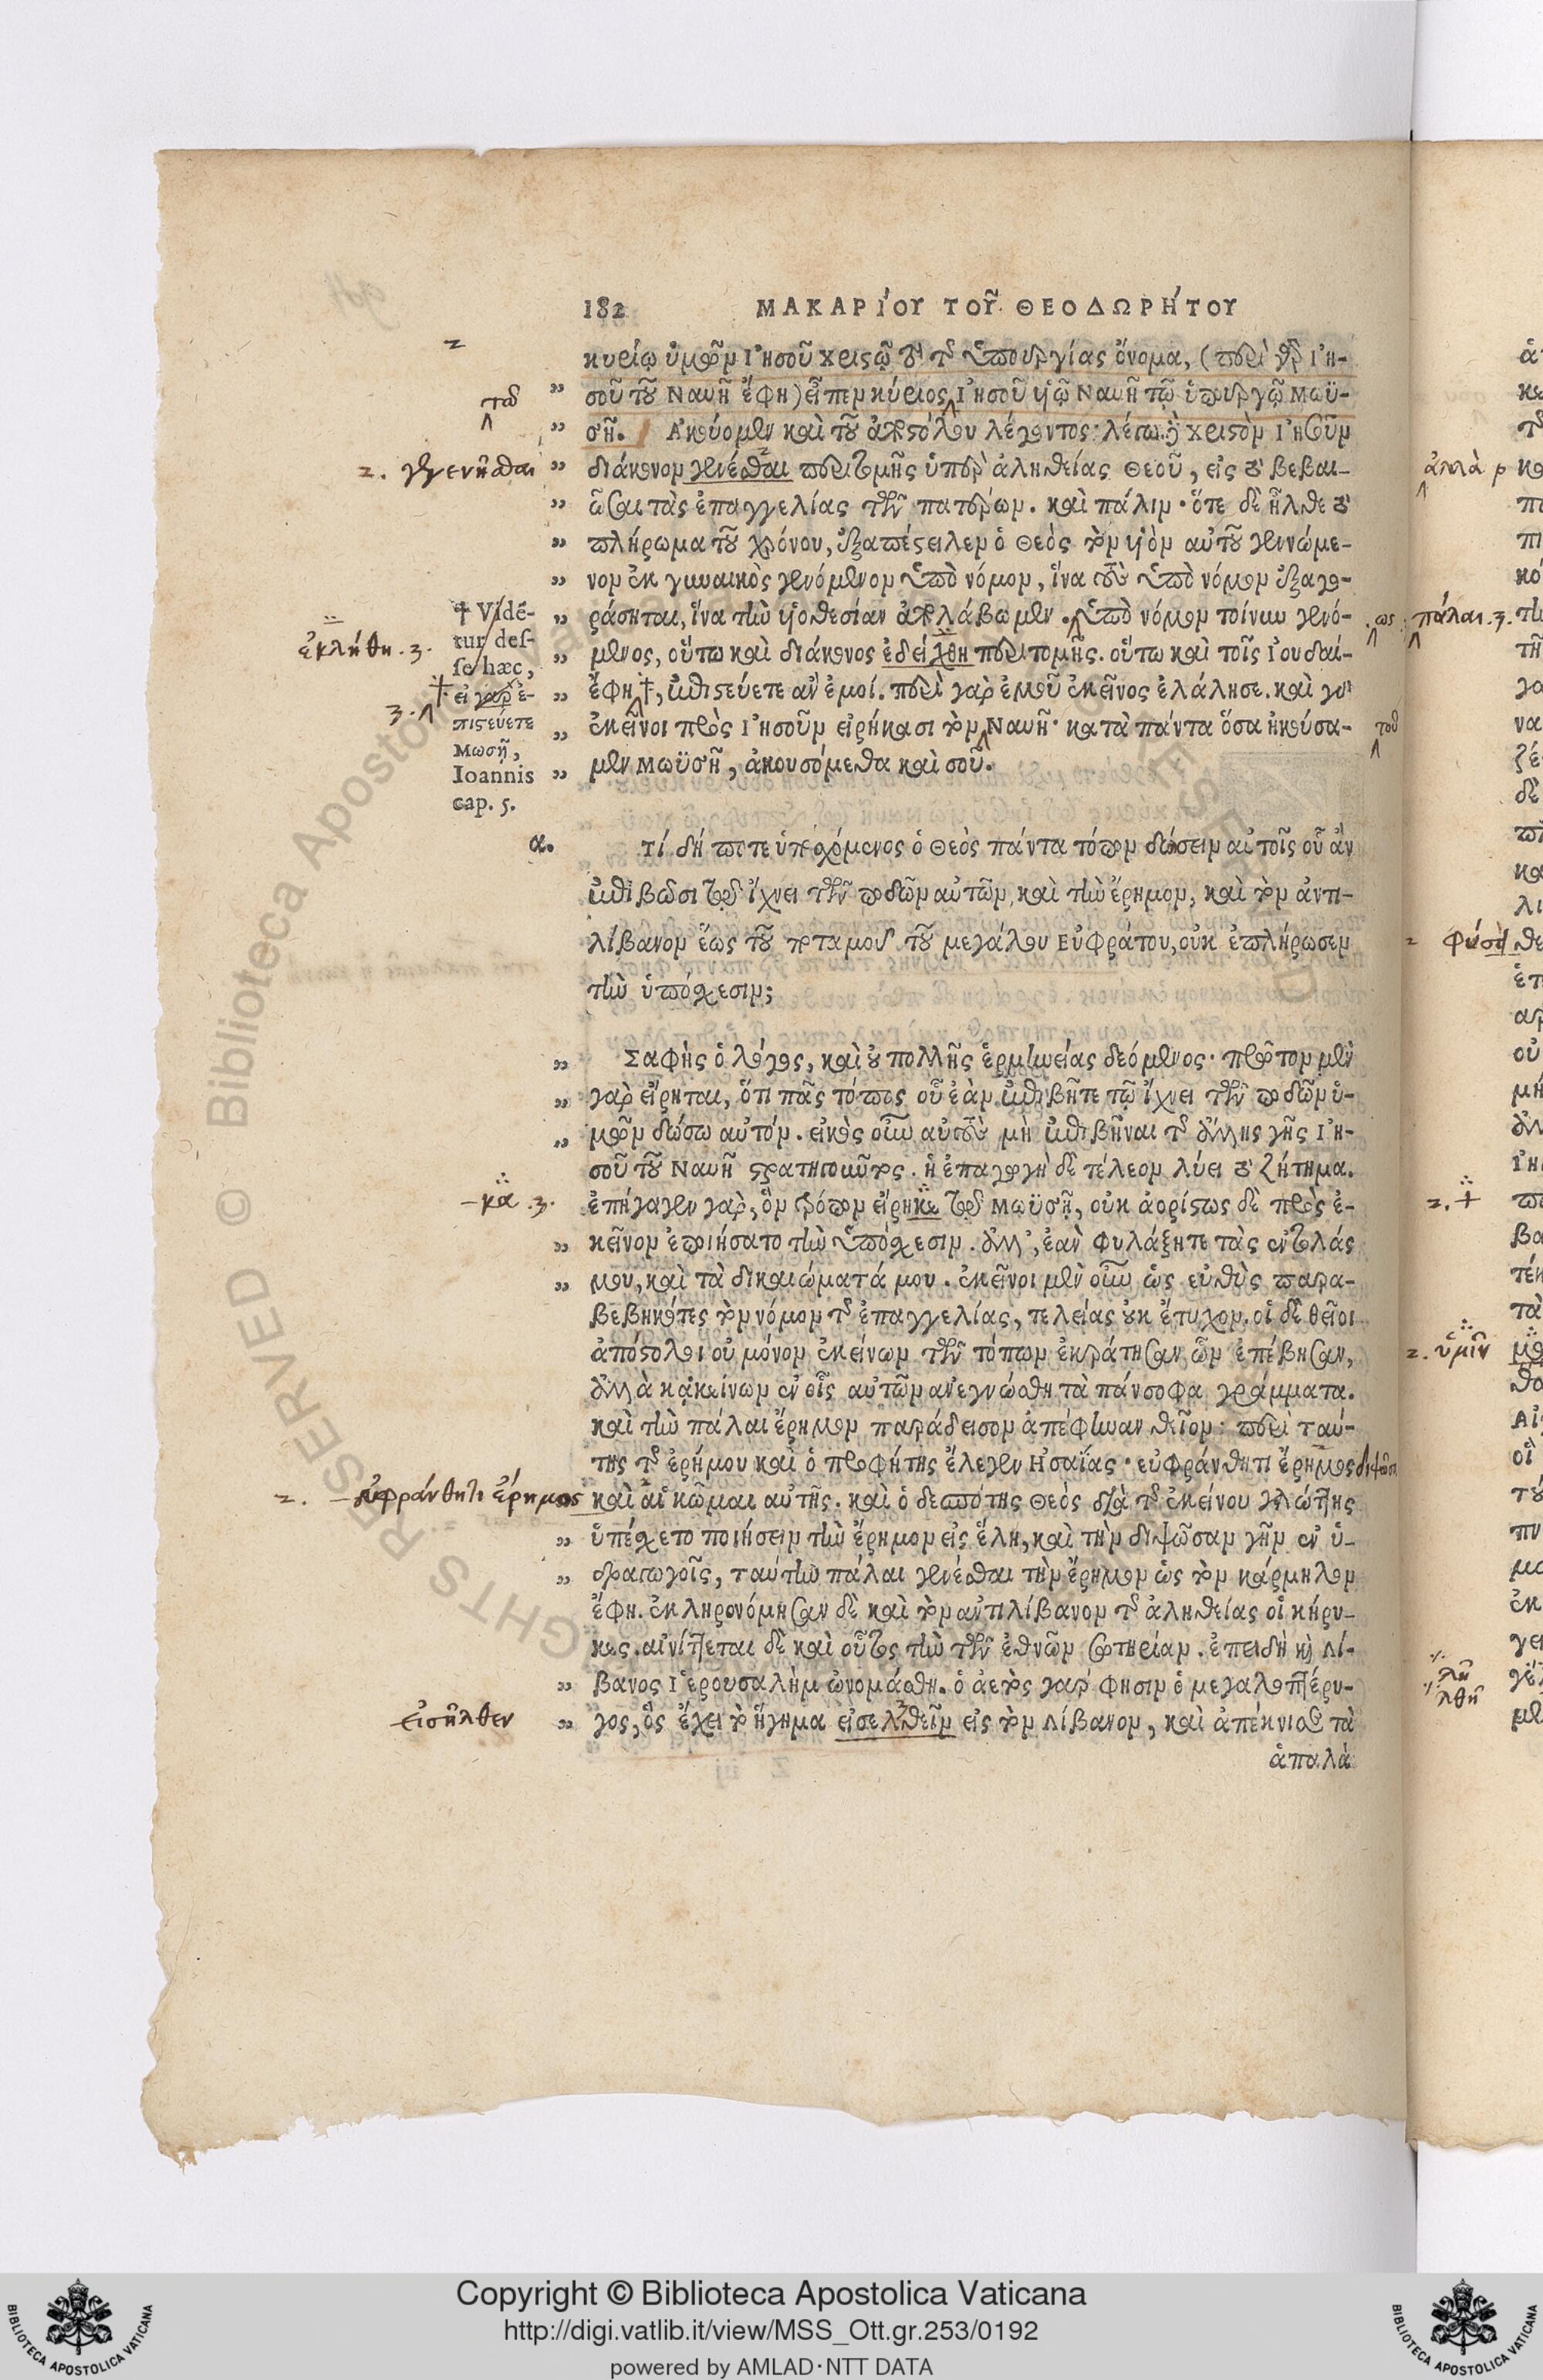 182 ΜΑΚΑΡΊΟΥ ΤΟΥ͂ ΘΕΟΔΩΡΉΤΟΥ
κυρίῳ ἡμῶν Ἰησοῦ Χριστῷ τὸ τῆς ὑπουργίας ὄνομα, (περὶ γὰρ Ἰη-
τοῦ
σοῦ τοῦ Ναυῆ ἔφη) εἶπεν κύριος Ἰησοῦ υἱῷ Ναυῆ τῷ ὑπουργῷ Μωϋ-
σῆ. Ἀκούομεν καὶ τοῦ ἀποστόλου λέγοντος· λέγω δὲ Χριστὸν Ἰησοῦν
2. γεγενῆσθαι
διάκονον γενέσθαι περιτομῆς ὑπὲρ ἀληθείας Θεοῦ, εἰς τὸ βεβαι-
ῶσαι τὰς ἐπαγγελίας τῶν πατέρων. καὶ πάλιν· ὅτε δὲ ἦλθε τὸ
πλήρωμα τοῦ χρόνου, ἐξαπέστειλεν ὁ Θεὸς τὸν υἱὸν αὐτοῦ γεννώμε-
νον ἐκ γυναικὸς γενόμενον ὑπὸ νόμον, ἵνα τοὺς ὑπὸ νόμον ἐξαγο-
ράσηται, ἵνα τὴν υἱοθεσίαν ἀπολάβωμεν. ὑπὸ νόμον τοίνυν γενό-
ὡς
ἐκλήθη. 3.
μενος, οὕτω καὶ διάκονος ἐδείχθη περιτομῆς. οὕτω καὶ τοῖς Ἰουδαί-
ἔφη †, ἐπιστεύετε ἂν ἐμοί. περὶ γὰρ ἐμοῦ ἐκεῖνος ἐλάλησε. καὶ
ἐκεῖνοι πρὸς Ἰησοῦν εἰρήκασι τὸν Ναυῆ· κατὰ πάντα ὅσα ἠκούσα-
τοῦ
μεν Μωϋσῆ, ἀκουσόμεθα καὶ σοῦ.
† Vidē-
tur des-
se hæc,
εἰ γὰρ ἐ-
πιστεύετε
Μωσῇ,
Ioannis
cap. 5.
α.
Τί δή ποτε ὑποσχόμενος ὁ Θεὸς πάντα τόπον δώσειν αὐτοῖς οὗ ἂν
ἐπιβῶσι τῷ ἴχνει τῶν ποδῶν αὐτῶν, καὶ τὴν ἔρημον, καὶ τὸν ἀντι-
λίβανον ἕως τοῦ ποταμοῦ τοῦ μεγάλου Εὐφράτου, οὐκ ἐπλήρωσεν
τὴν ὑπόσχεσιν;
Σαφὴς ὁ λόγος, καὶ οὐ πολλῆς ἑρμηνείας δεόμενος· πρῶτον μὲν
γὰρ εἴρηται, ὅτι πᾶς τόπος οὗ ἐὰν ἐπιβῆτε τῷ ἴχνει τῶν ποδῶν ὑ-
μῶν δώσω αὐτόν. εἰκὸς οὖν αὐτοὺς μὴ ἐπιβῆναι τῆς ἄλλης γῆς Ἰη-
σοῦ τοῦ Ναυῆ στρατηγοῦντος. ἡ ἐπαγωγὴ δὲ τέλεον λύει τὸ ζήτημα.
-κα. 3.
ἐπήγαγεν γὰρ, ὃν τρόπον εἴρηκε τῷ Μωϋσῇ, οὐκ ἀορίστως δὲ πρὸς ἐ-
κεῖνον ἐποιήσατο τὴν ὑπόσχεσιν. ἀλλ', ἐὰν φυλάξητε τὰς ἐντολάς
μου, καὶ τὰ δικαιώματά μου. ἐκεῖνοι μὲν οὖν ὡς εὐθὺς παρα-
βεβηκότες τὸν νόμον τῆς ἐπαγγελίας, τελείας οὐκ ἔτυχον. οἱ δὲ θεῖοι
ἀπόστολοι οὐ μόνον ἐκείνων τῶν τόπων ἐκράτησαν, ὧν ἐπέβησαν,
ἀλλὰ κἀκείνων ἐν οἷς αὐτῶν ἀνεγνώσθη τὰ πάνσοφα γράμματα.
καὶ τὴν πάλαι ἔρημον παράδεισον ἀπέφηναν θεῖον· περὶ ταύ-
της τῆς ἐρήμου καὶ ὁ προφήτης ἔλεγεν Ἠσαΐας· εὐφράνθητι ἔρημος διψῶσα
2. -εὐφράνθητι ἔρημος
καὶ αἱ κῶμαι αὐτῆς. καὶ ὁ δεσπότης Θεὸς διὰ τῆς ἐκείνου γλώττης
ὑπέσχετο ποιήσειν τὴν ἔρημον εἰς ἕλη, καὶ τὴν διψῶσαν γῆν ἐν ὑ-
δραγωγοῖς, ταύτην πάλαι γενέσθαι τὴν ἔρημον ὡς τὸν κάρμηλον
ἔφη. ἐκληρονόμησαν δὲ καὶ τὸν ἀντιλίβανον τῆς ἀληθείας οἱ κήρυ-
κες. αἰνίττεται δὲ καὶ οὗτος τὴν τῶν ἐθνῶν σωτηρίαν. ἐπειδὴ καὶ λί-
βανος Ἱερουσαλὴμ ὠνομάσθη. ὁ ἀετὸς γάρ φησιν ὁ μεγαλοπτέρυ-
εἰσῆλθεν
γος, ὃς ἔχει τὸ ἥγημα εἰσελθεῖν εἰς τὸν λίβανον, καὶ ἀπέκνισε τὰ
ἁπαλὰ
ἀλλὰ
πάλαι. 3.
φύσει
2. +
2. ὑμῖν
© Biblioteca Apostolica Vaticana
RIGHTS RESERVED
Copyright © Biblioteca Apostolica Vaticana
http://digi.vatlib.it/view/MSS_Ott.gr.253/0192
powered by AMLAD·NTT DATA
BIBLIOTECA APOSTOLICA VATICANA
BIBLIOTECA APOSTOLICA VATICANA